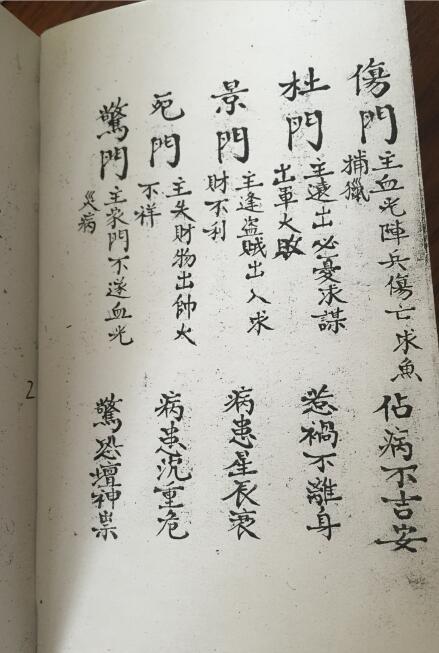 傷門
主血光陣兵傷亡求魚
捕獵
佔病不吉安
杜門
主遠出必憂求謀
出軍大敗
惹禍不離身
景門
主逢盜賊出入求
財不利
病患星辰衰
死門
主失財物出帥大
不祥
病患沉重危
驚門
主家門不遂血光
災病
驚恐壇神祟
2